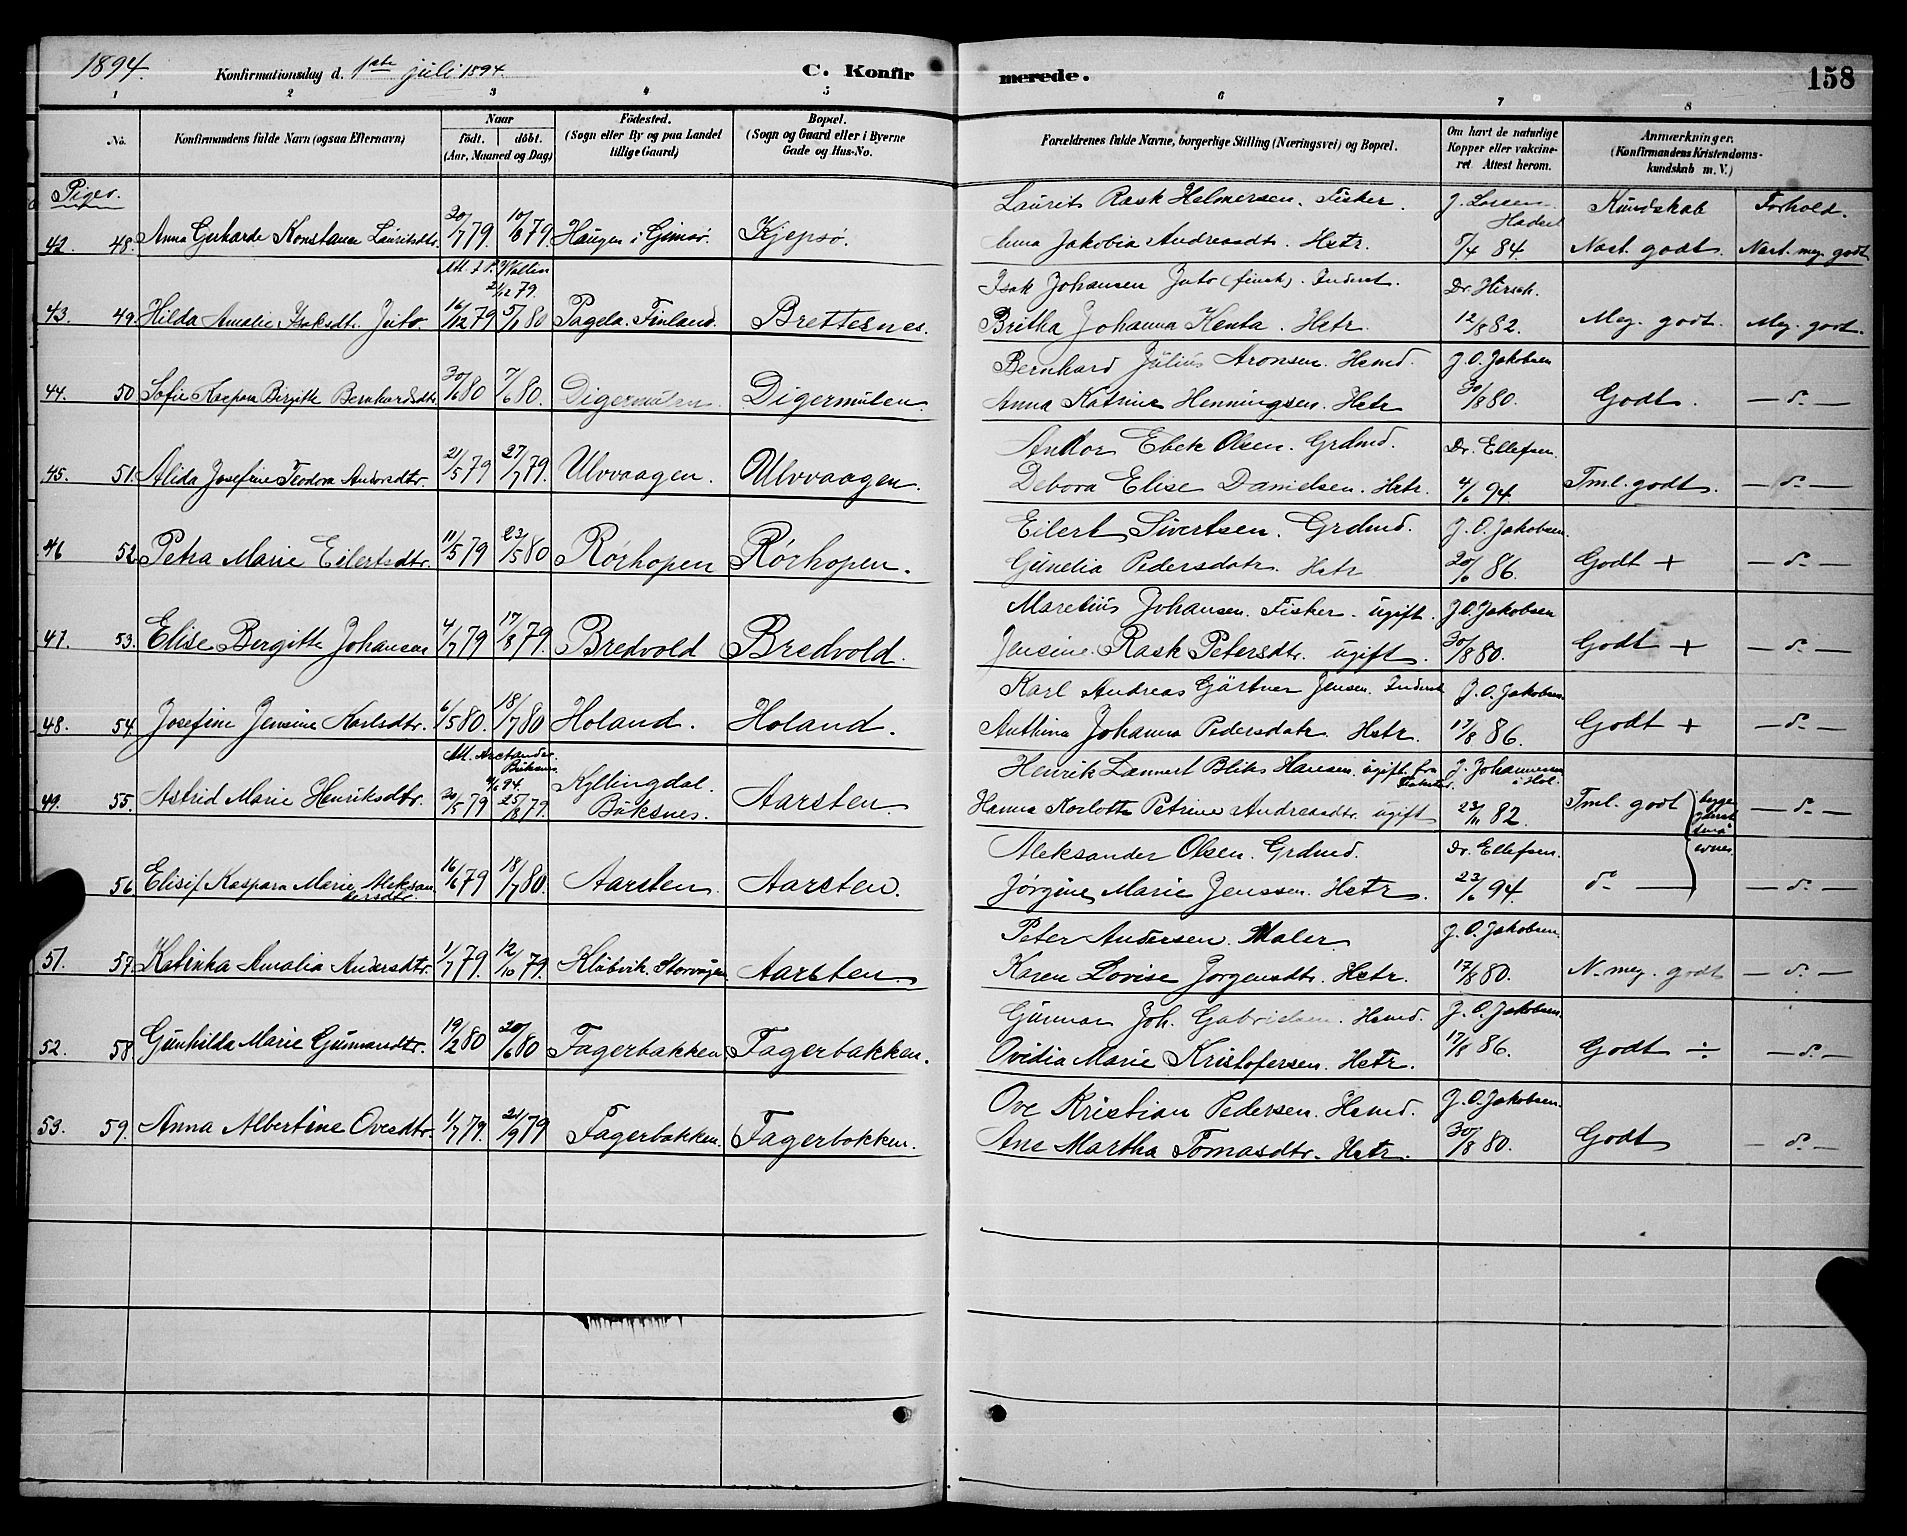 1894. Konfirmationsdag d. 1ste juli 1894. C. Konfir merede. 158
1 2 3 4 5 6 7 8
No. Konfirmandens fulde Navn (ogsaa Efternavn) Naar födt. döbt. (Aar, Maaned og Dag) Födested. (Sogn eller By og paa Landet tillige Gaard) Bopæl. (Sogn og Gaard eller i Byerne Gade og Hus-No.
Forældrenes fulde Navne, borgerlige Stilling (Næringsvei) og Bopæl. Om havt de naturlige Kopper eller vakcineret Attest herom. Anmærkninger. (Konfirmandens Kristendomskundskab m. V.)
Piger.
Laurits Rask Helmersen. Fisker. Kundskab Forhold.
42. 48. Anna Gerharde Konstanse Lauritsdtr. 20/7 79 10/8 79 Haugen i Gimsö. Kjepsö. Anna Jakobia Andreasdtr. Hstr. 5/4 84. Nast. godt. Nast. meg. godt
21/12 79.
Isak Johansen Juto (finsk). Inderst. Dr. Hirsch.
43. 49. Hilda Amalie Isaksdtr. Juto. 16/12 79 5/1 80 Pagela. Finland. Brettesnes. Britha Johanna Kenta. Hstr. 12/8 82. Meg. godt. Meg. godt.
Bernhard Julius Aronsen. Hsmd. J. O. Jakobsen
44. 50 Sofie Kaspara Birgitte Bernhardsdtr. 30/1 80 7/6 80. Digermulen. Digermulen. Anna Katrina Henningsen. Hstr 30/8 80. Godt. — do —
Andor Ebek Olsen. Grdmd. Dr. Ellefsen.
45. 51. Alida Josefine Teodora Andorsdtr. 21/5 79 27/7 79. Ulvvaagen. Ulvvaagen. Debora Elise Danielsen. Hstr. 4/6 94. Tml. godt. — do —
Eilert Sivertsen. Grdmd. J. O. Jakobsen.
46 52. Petra Marie Eilertsdtr. 11/5 79 23/5 80 Rórhopen Rórhopen. Gunelia Pedersdatr. Hstr 20/6 86. Godt + — do —
Maretius Johansen. Fisker. ugift. J. O. Jakobsen
47. 53. Elise Bergitte Johansen 4/7 79 17/8 79. Bredvold Bredvold. Jensine Rask Petersdtr. ugift. 30/8 80. Godt + — do —
Karl Andreas Gärtner Jensen. Inderst J. O. Jakobsen
48. 54. Josefine Jensine Karlsdtr. 6/5 80. 18/7 80 Holand. Holand. Anthina Johanna Pedersdatr. Hstr. 17/8 86. Godt + — do —
Att. Arctander. Buksnes. 4/6 94.
Henrik Lannert Bliks Hansen. ugift. fra J. Johannesen i Hol.
49. 55. Astrid Marie Henriksdtr. 20/5 79 25/8 79. Kyllingdal. Buksnes. Aarsten. Hanna Karlotte Petrine Andreasdtr. ugift 23/11 82. Tml. godt begge ganske små evner. — do —
Aleksander Olsen. Grdmd. Dr. Ellefsen.
56. Elisif Kaspara Marie Aleksandersdtr. 16/6 79 18/7 80. Aarsten. Aarsten. Jørgine Marie Jenssen. Hstr. 23/6 94. do — — do —
Peter Andersen. Maler. J. O. Jakobsen.
51. 57. Katinka Amalia Andersdtr. 1/7 79. 12/10 79. Klubvik. Storvågen Aarsten. Karen Lovise Jörgensdtr. Hstr. 17/8 80. N. meg. godt — do —
Gunnar Joh. Gabrielsen. Hsmd. J. O. Jakobsen.
52. 58 Gunhilda Marie Gunnarsdtr. 19/2 80 20/6 80 Fagerbakken Fagerbakken. Ovidia Marie Kristofersen. Hstr. 17/8 86. Godt ÷ — do —
Ove Kristian Pedersen. Hsmd. J. O. Jakobsen.
53. 59. Anna Albertine Ovesdtr. 1/7 79. 21/9 79 Fagerbakken. Fagerbakken. Ane Martha Tomasdtr. Hstr. 30/8 80. Godt — do —